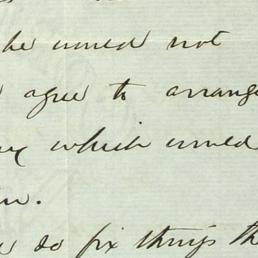 he would not
agree to arrange
which would
do fix things th